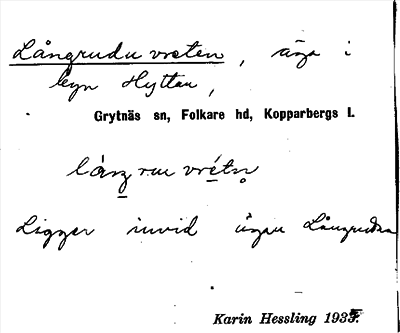 Långrudu vreten, äga i
byn Hyttan,
Grytnäs sn, Folkare hd, Kopparbergs l.
Ligger invid ägan Långrudan
Karin Hessling 1935.